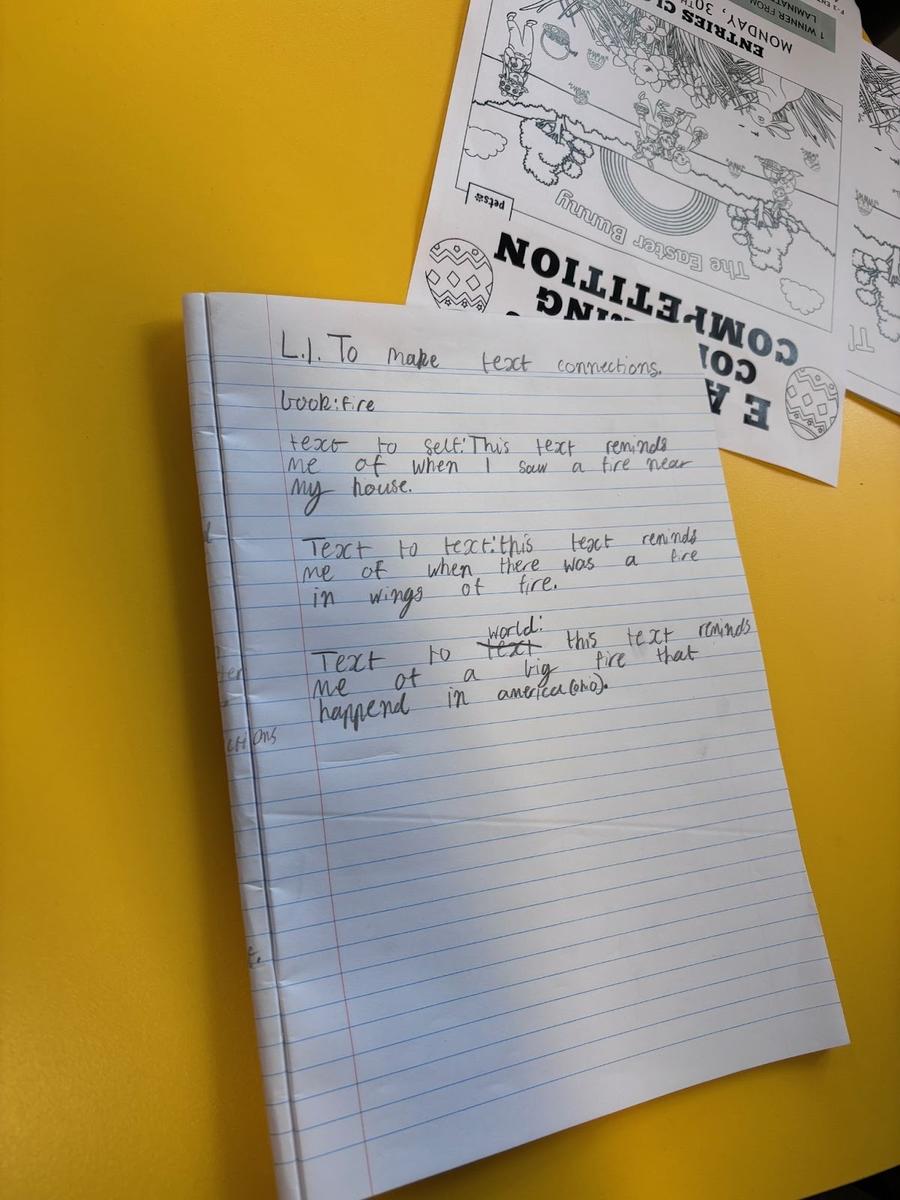 L.I. To make text connections.
book:fire
text to self: This text reminds
me of when I saw a fire near
my house.
Text to text: this text reminds
me of when there was a fire
in wings of fire.
world:
Text to text this text reminds
me of a big fire that
happend in america (ohio).
ctions
E A
CO
COMPETITION
The Easter Bunny
pets
ENTRIES
MONDAY, 30TH
1 WINNER FROM